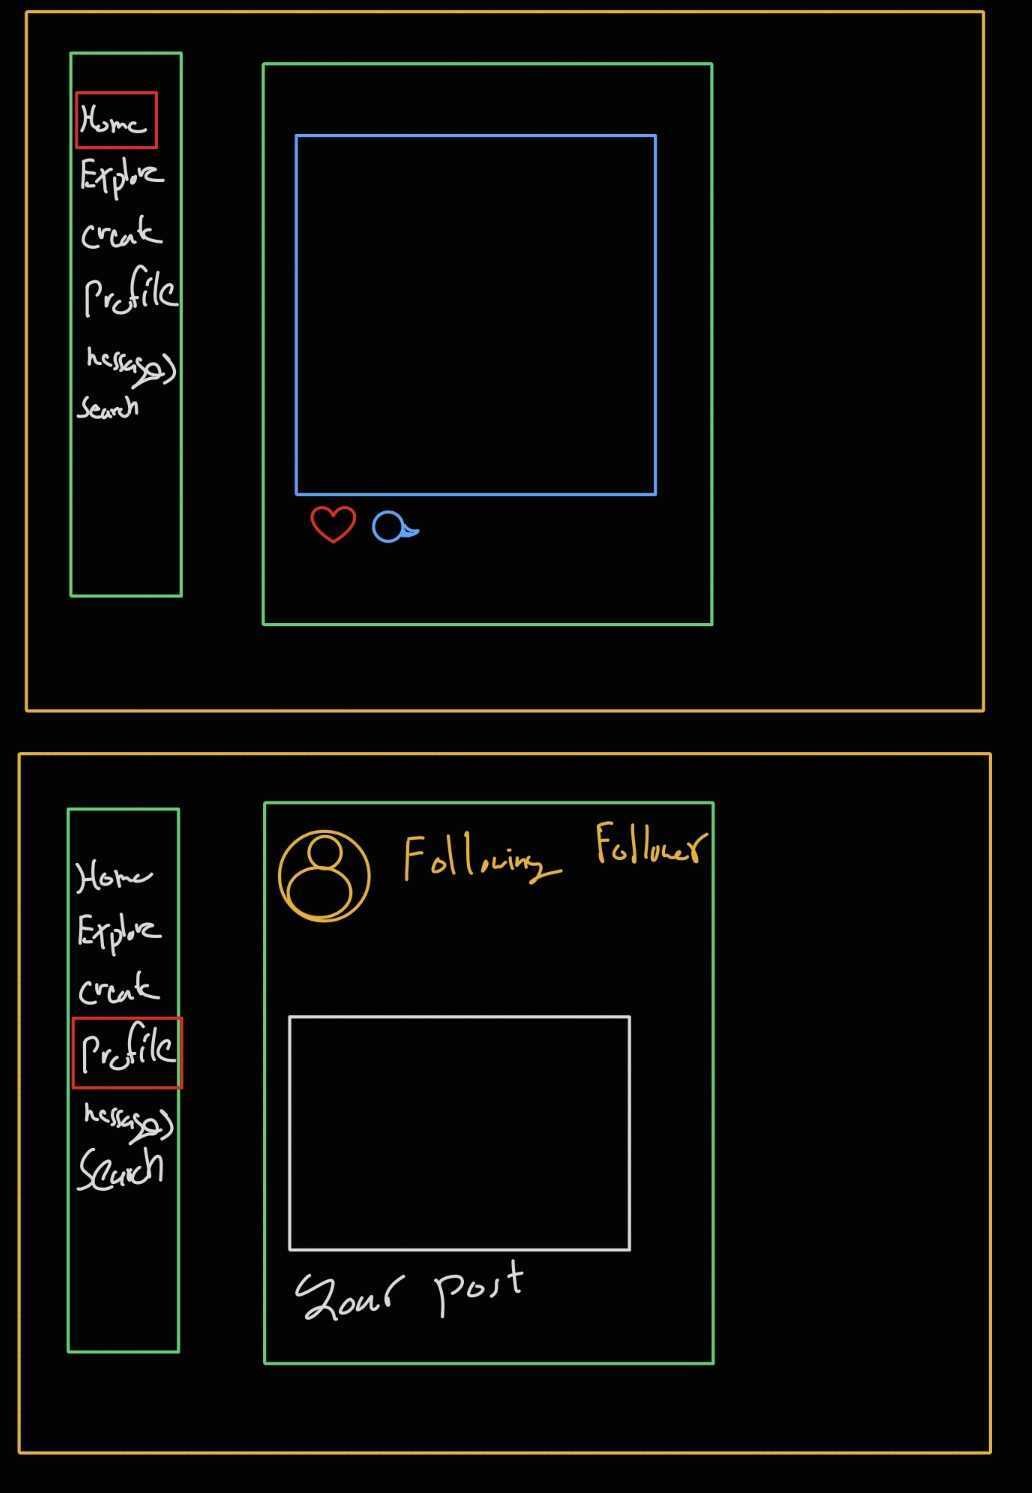 Home
Explore
create
Profile
messages
Search
Home
Explore
create
Profile
messages
Search
Following Follower
Your post